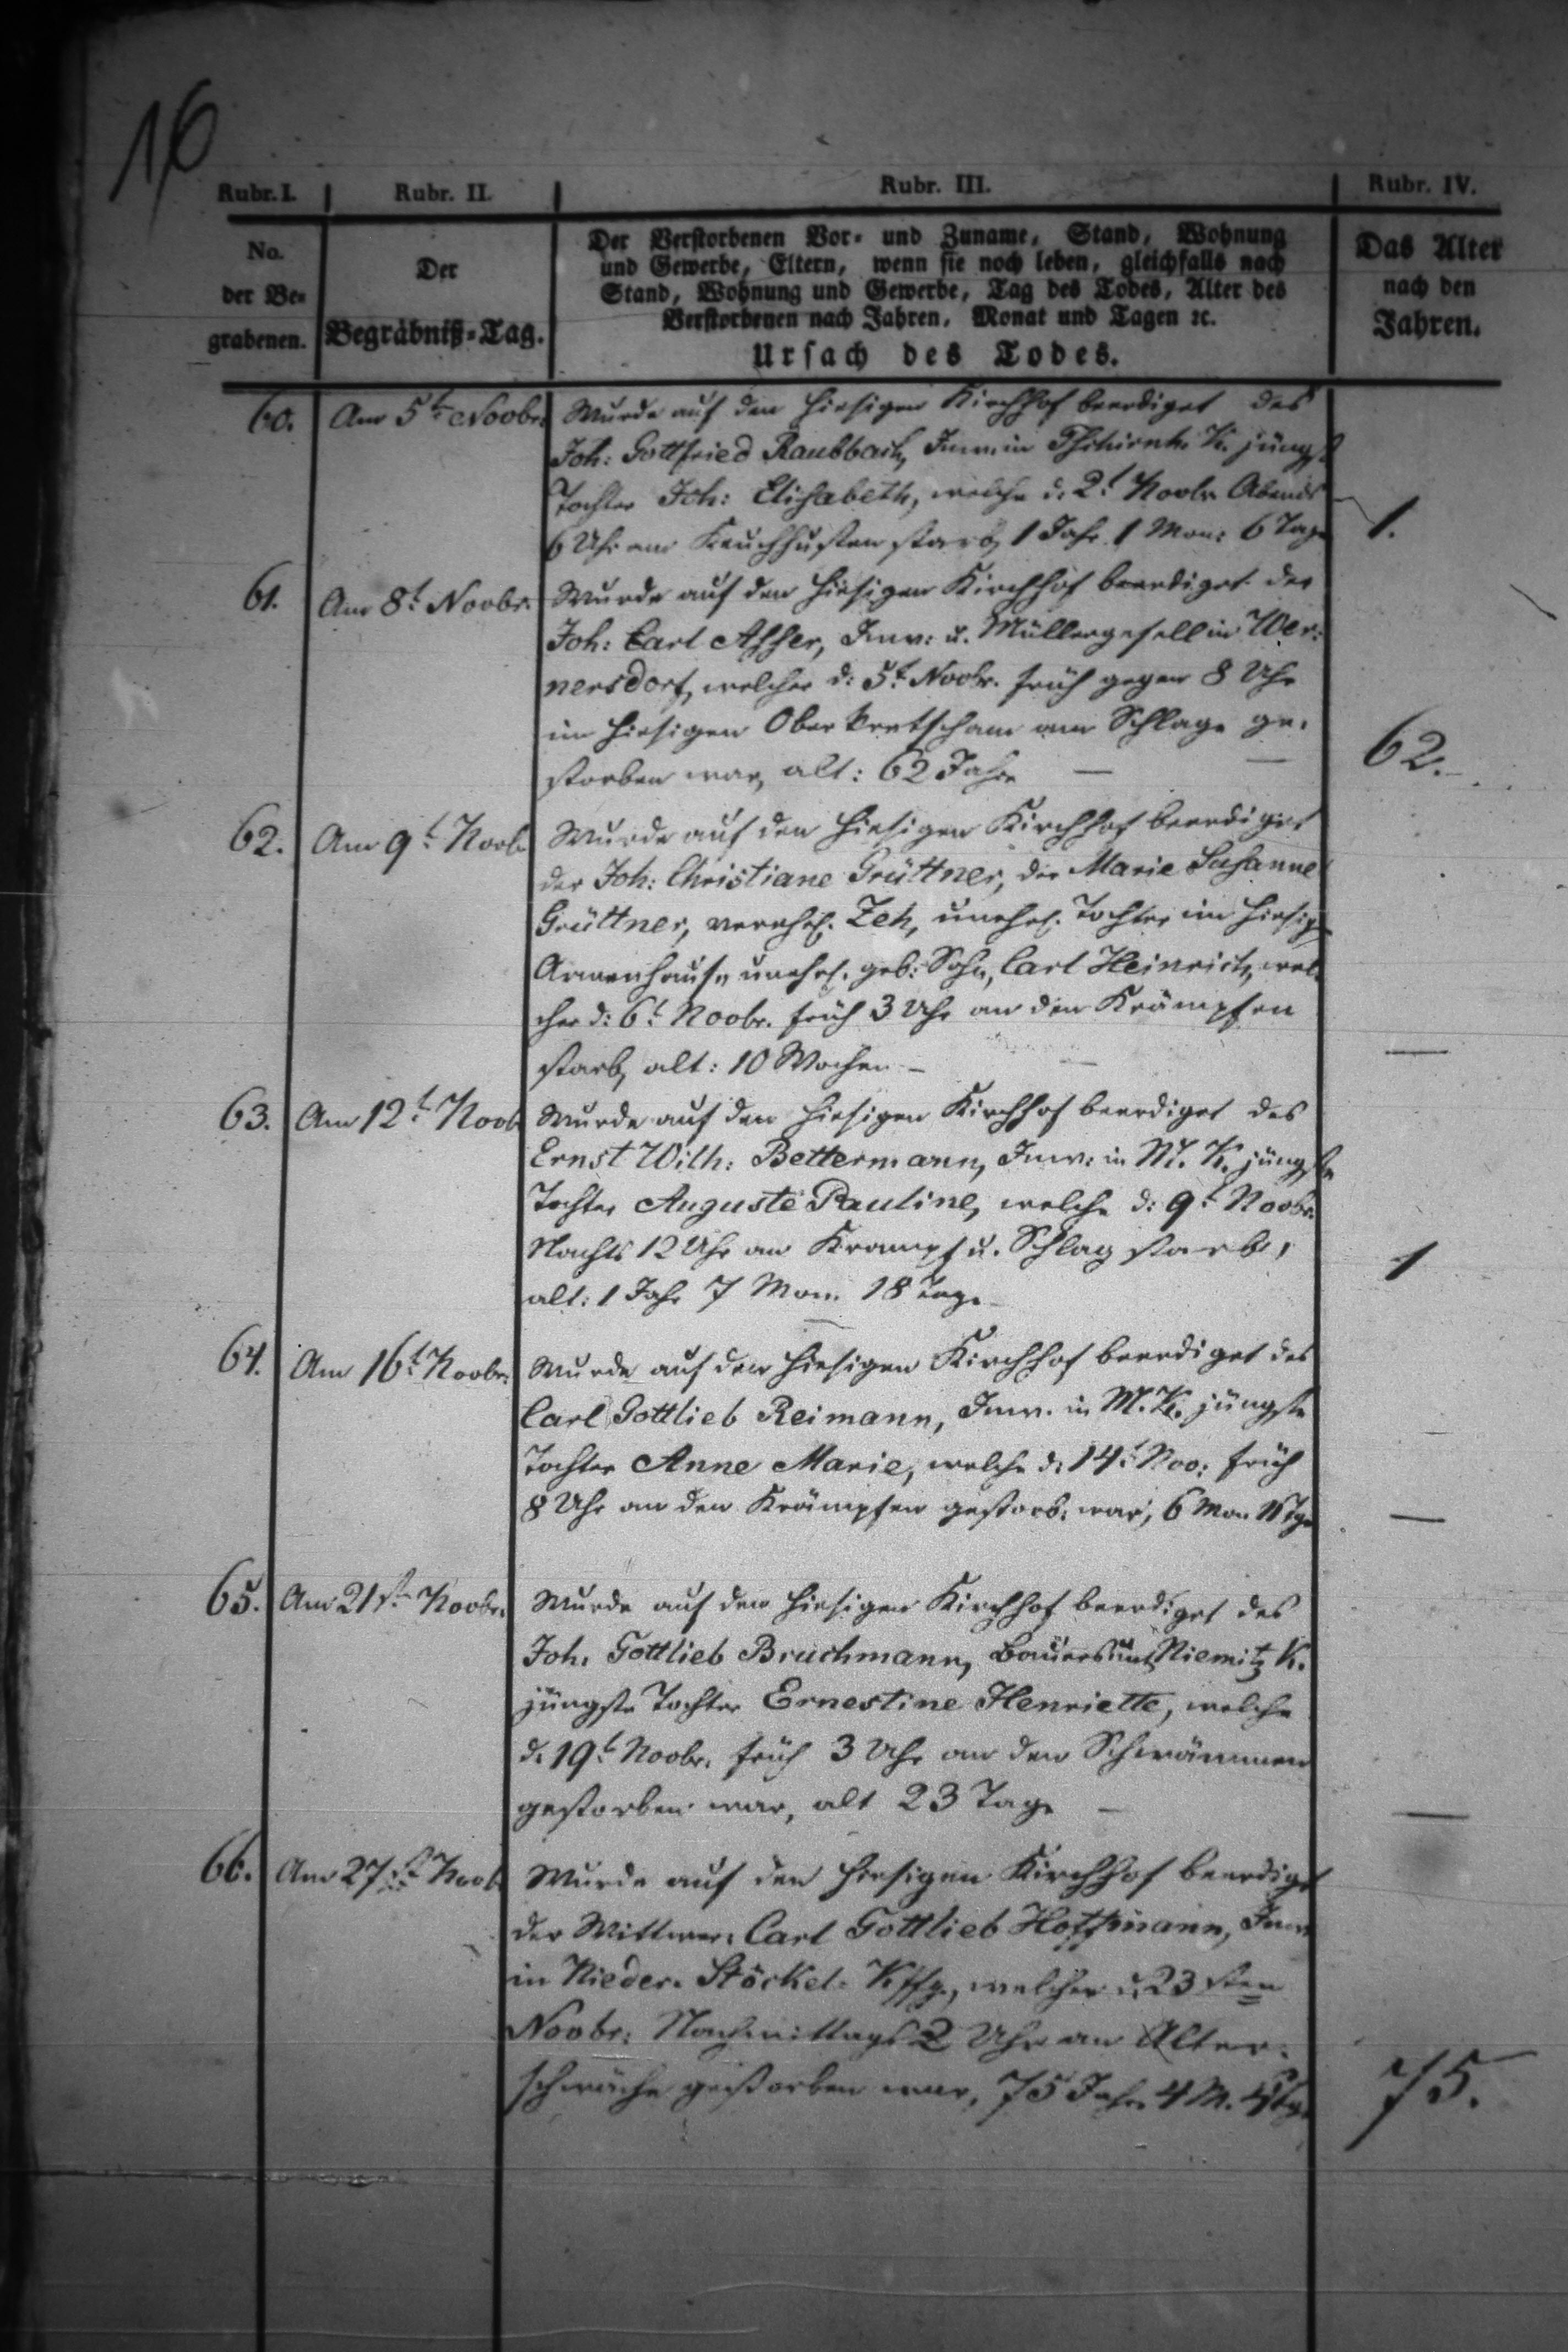 16
Rubr. I. Rubr. II. Rubr. III. Rubr. IV.
No.
der Be-
grabenen.
Der
Begräbniß-Tag.
Der Verstorbenen Vor- und Zuname, Stand, Wohnung
und Gewerbe, Eltern, wenn sie noch leben, gleichfalls nach
Stand, Wohnung und Gewerbe, Tag des Todes, Alter des
Verstorbenen nach Jahren, Monat und Tagen ꝛc.
Ursach des Todes.
Das Alter
nach den
Jahren.
60. Am 5t Novbr. Wurde auf den hiesigen Kirchhof beerdiget des
Joh: Gottfried Raubbach, Inw: in Tschirnh. K. jüngst
Tochter Joh: Elisabeth, welche d. 2t Novbr Abends
6 Uhr am Keuchhusten starb, 1 Jahr 1 Mon: 6 Tage 1.
61. Am 8t Novbr. Wurde auf den hiesigen Kirchhof beerdiget der
Joh: Carl Assher, Inw: u. Müllergesell in Wer:
nersdorf, welcher d: 5t Novbr. früh gegen 8 Uhr
im hiesigen Oberkretscham am Schlage ge-
storben war, alt: 62 Jahre — — 62.
62. Am 9t Novb Wurde auf den hiesigen Kirchhof beerdiget
der Joh: Christiane Grüttner, der Marie Susanne
Grüttner, verehl. Zeh, unehl. Tochter im hiesig
Armenhause unehl. geb: Sohn, Carl Heinrich, wel
cher d: 6t Novbr. früh 3 Uhr an den Krämpfen
starb, alt: 10 Wochen — —
63. Am 12t Novb Wurde auf den hiesigen Kirchhof beerdiget des
Ernst Wilh: Bettermann, Inw: in M. K. jüngste
Tochter Auguste Pauline, welche d: 9t Novbr.
Nachts 12 Uhr an Krampf u. Schlag starb,
alt: 1 Jahr 7 Mon. 18 Tage — 1
64. Am 16t Novbr. Wurde auf den hiesigen Kirchhof beerdiget des
Carl Gottlieb Reimann, Inw. in M. K. jüngste
Tochter Anne Marie, welche d. 14t Nov: früh
8 Uhr an den Krämpfen gestorb: war, 6 Mon —
65. Am 21st Novbr. Wurde auf den hiesigen Kirchhof beerdiget des
Joh. Gottlieb Bruchmann, Niemitz K.
jüngste Tochter Ernestine Henriette, welche
d. 19t Novbr. früh 3 Uhr an den Schwämmen
gestorben war, alt 23 Tage — —
66. Am 27st Novb. Wurde auf den hiesigen Kirchhof beerdiget
der Wittwer: Carl Gottlieb Hoffmann, Inw
in Nieder. Stöckel. welcher d. 23sten
Novbr: Nachmittags 2 Uhr an Alter-
schwäche gestorben war, 75 Jahr 4 M. 75.